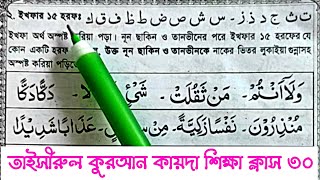 ২. ইখফার ১৫ হরফঃ ت ث ج د ذ ز س ش ص ض ط ظ ف ق ك
ইখফা অর্থ অস্পষ্ট করিয়া পড়া। নূন ছাকিন ও তানভীনের পরে ইখফার ১৫ হরফের যে
কোন একটি হরফ উক্ত নূন ছাকিন ও তানভীনকে নাকের ভিতর লুকাইয়া গুন্নাসহ
অস্পষ্ট করিয়া পড়িতে
وَلَا أَنْتُمْ - مَنْ ثَقُلَتْ - دَكًّا دَكًّا
مُنْذِرُونَ - نَفْسًا زَكِيَّةً - عَذَابًا شَدِيدًا
তাইসীরুল কুরআন কায়দা শিক্ষা ক্লাস ৩০